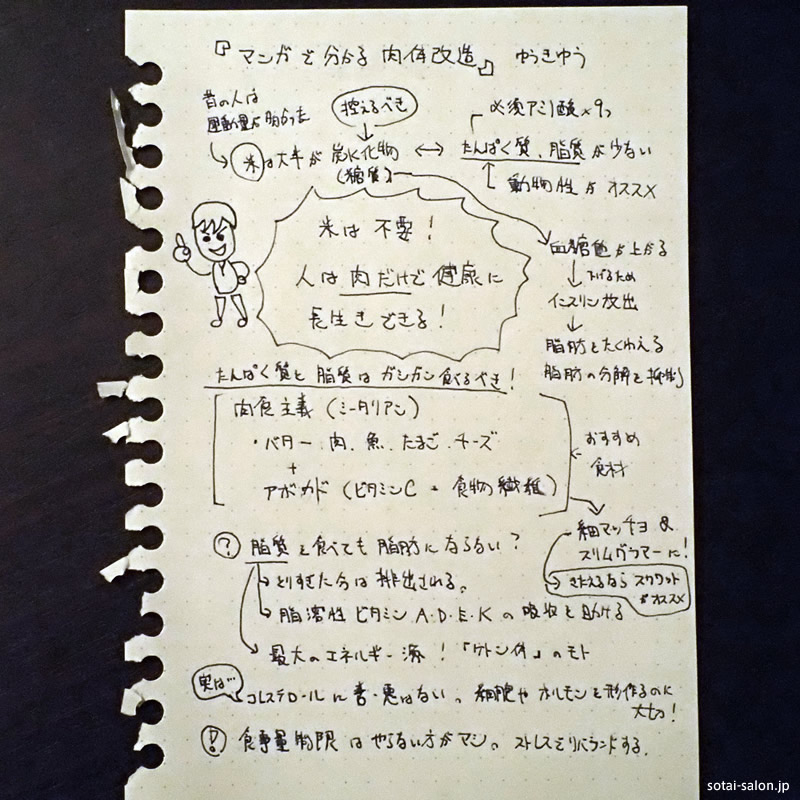 『マンガで分かる肉体改造』 ゆうきゆう
昔の人は
運動量が多かった
控えるべき
必須アミノ酸×9つ
米は大半が炭水化物 ↔ たんぱく質、脂質が少ない
(糖質)
動物性がオススメ
米は不要!
人は肉だけで健康に
長生きできる!
血糖値が上がる
↓下げるため
インスリン放出
↓
脂肪をたくわえる
脂肪の分解を抑制
たんぱく質と脂質はガンガン食べるべき!
肉食主義(ミータリアン)
・バター、肉、魚、たまご、チーズ
+
アボカド(ビタミンC + 食物繊維)
おすすめ
食材
細マッチョ&
スリムグラマーに!
きたえるなら スクワット
がオススメ
? 脂質を食べても脂肪にならない?
とりすぎた分は排出される。
脂溶性ビタミンA・D・E・Kの吸収を助ける
最大のエネルギー源!「ケトン体」のモト
実は…
コレステロールに善・悪はない。細胞やホルモンを形作るのに
大切!
! 食事量制限はやらない方がマシ。ストレスでリバウンドする。
sotai-salon.jp